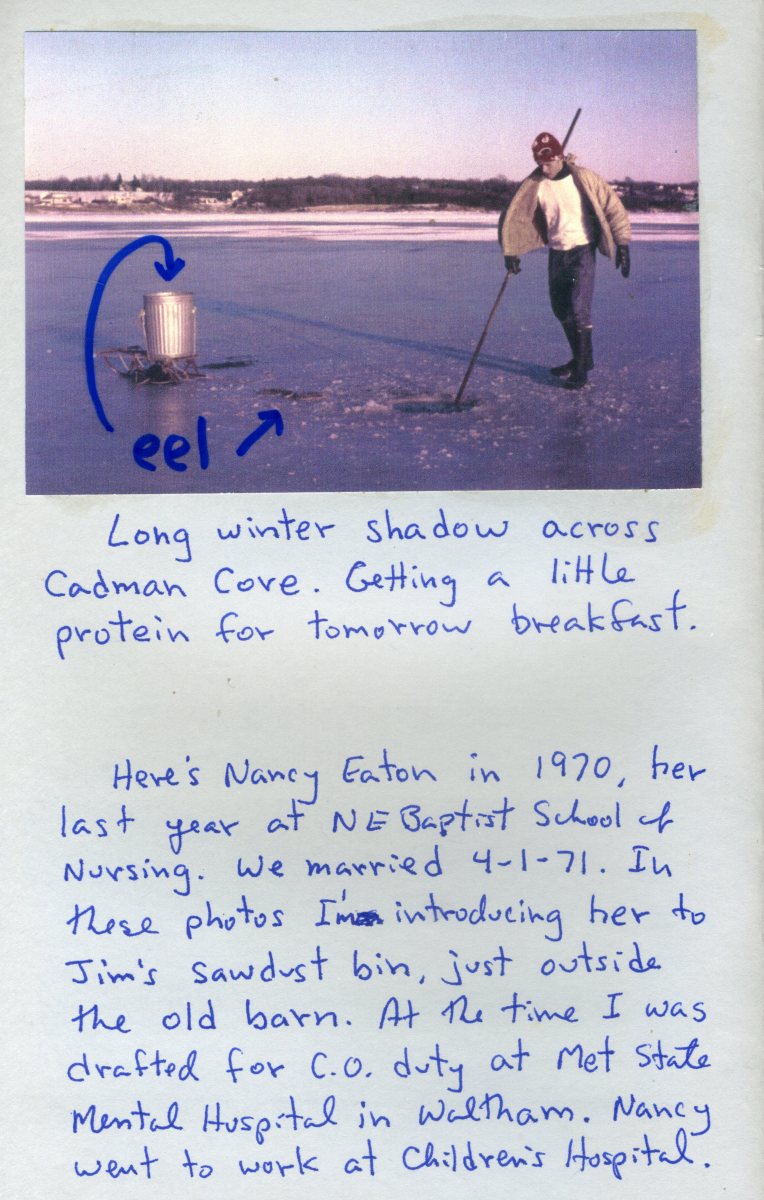 eel
Long winter shadow across
Cadman Cove. Getting a little
protein for tomorrow breakfast.
Here's Nancy Eaton in 1970, her
last year at NE Baptist School of
Nursing. We married 4-1-71. In
these photos I'm introducing her to
Jim's sawdust bin, just outside
the old barn. At the time I was
drafted for C.O. duty at Met State
Mental Hospital in Waltham. Nancy
went to work at Children's Hospital.